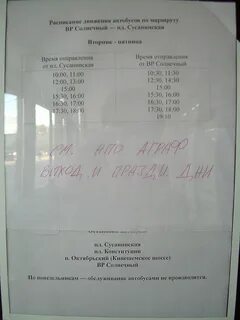 Расписание движения автобусов по маршруту
ВР Солнечный — пл. Сусанинская
Вторник - пятница
Время отправления от пл. Сусанинская
10:00, 11:00
12:00, 13:00
15:00
15:30, 16:00
16:30, 17:00
17:30, 18:00
Время отправления от ВР Солнечный
10:30, 11:30
12:30, 13:30
14:30
15:30, 16:00
16:30, 17:00
17:30, 18:00
19:10
ВЫХОД. И ПРАЗДН. ДНИ
пл. Сусанинская
пл. Конституции
п. Октябрьский (Кинешемское шоссе)
ВР Солнечный
По понедельникам — обслуживание автобусами не производится.